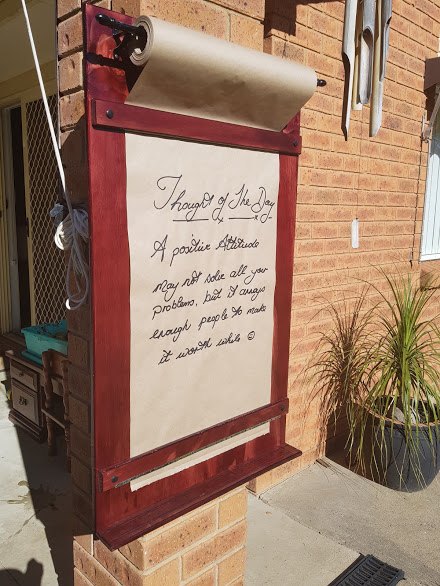 Thought of The Day
A positive Attitude
may not solve all your
problems, but it annoys
enough people to make
it worth while ☺